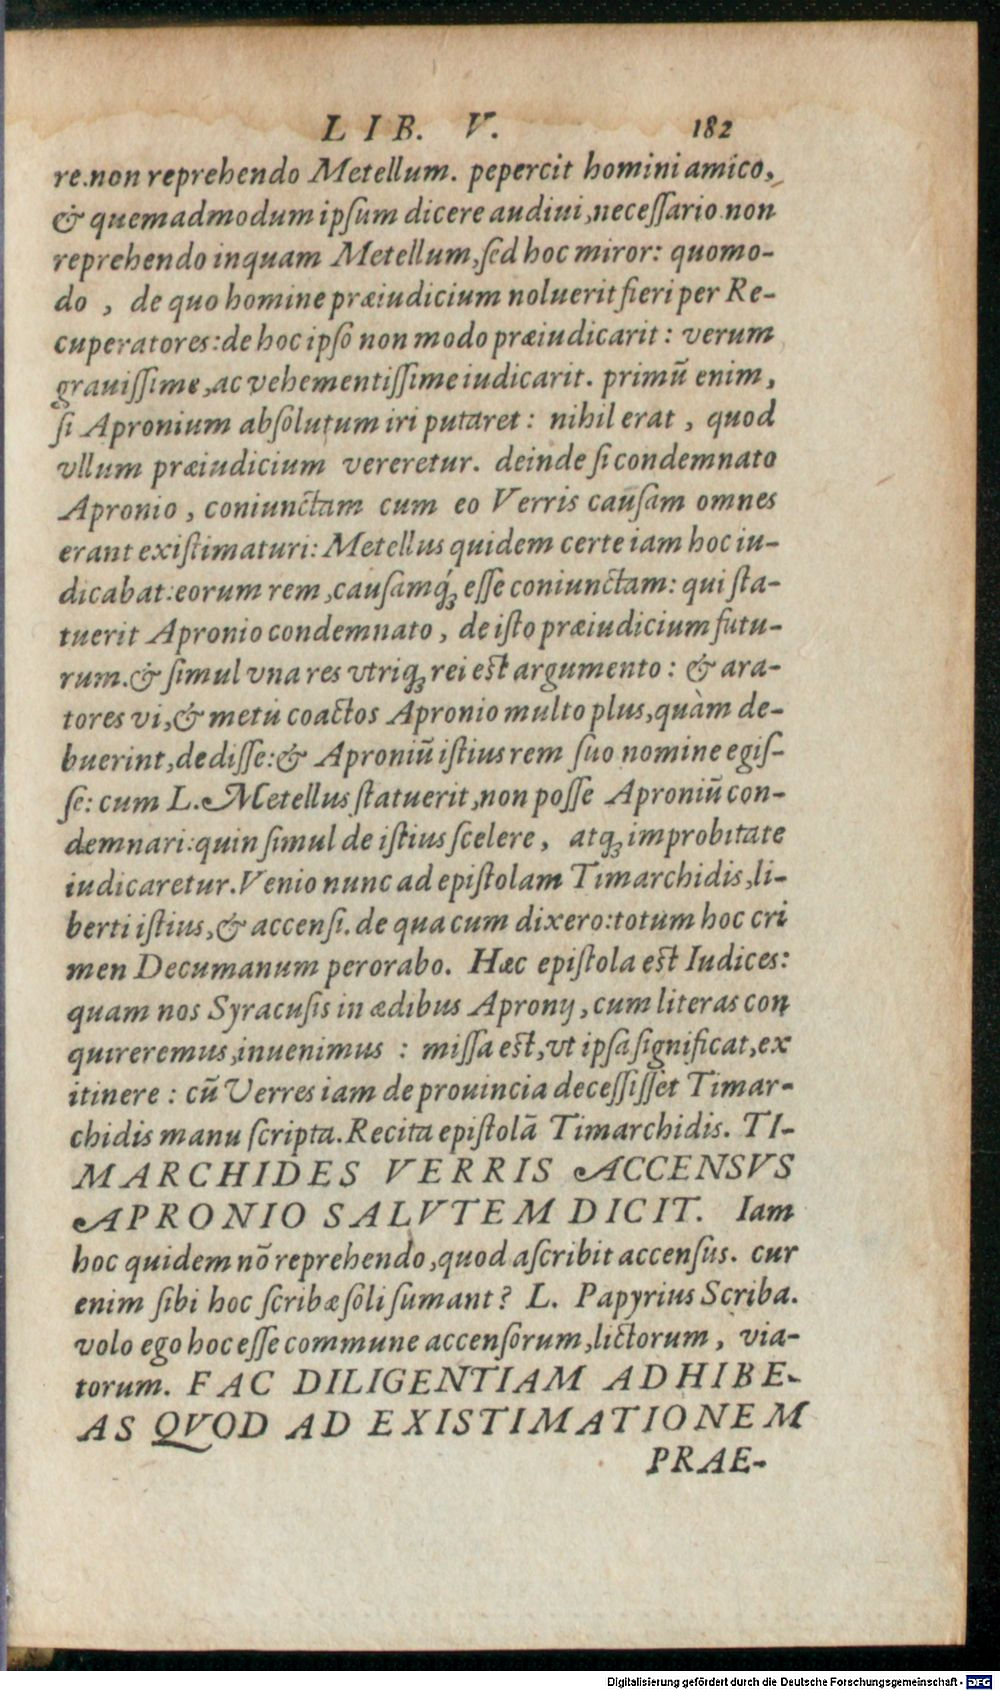 LIB. V. 182
re.non reprehendo Metellum. pepercit homini amico,
& quemadmodum ipſum dicere audiui,neceſſario non
reprehendo inquam Metellum,ſed hoc miror: quomo-
do , de quo homine præiudicium noluerit fieri per Re-
cuperatores:de hoc ipſo non modo præiudicarit: verum
grauiſſime,ac vehementiſſime iudicarit. primū enim,
ſi Apronium abſolutum iri putaret: nihil erat , quod
vllum præiudicium vereretur. deinde ſi condemnato
Apronio , coniunctam cum eo Verris cauſam omnes
erant exiſtimaturi: Metellus quidem certe iam hoc iu-
dicabat:eorum rem,cauſamq́; eſſe coniunctam: qui ſta-
tuerit Apronio condemnato , de iſto præiudicium futu-
rum.& ſimul vna res vtriq; rei est argumento: & ara-
tores vi,& metu coactos Apronio multo plus,quàm de-
buerint,dediſſe:& Aproniū iſtius rem ſuo nomine egiſ-
ſe: cum L.Metellus ſtatuerit,non poſſe Aproniū con-
demnari:quin ſimul de iſtius ſcelere, atq; improbitate
iudicaretur.Venio nunc ad epiſtolam Timarchidis,li-
berti iſtius,& accenſi. de qua cum dixero:totum hoc cri
men Decumanum perorabo. Hæc epiſtola est Iudices:
quam nos Syracuſis in ædibus Apronij,cum literas con
quireremus,inuenimus : miſſa est,vt ipſa ſignificat,ex
itinere : cū Verres iam de prouincia deceſſiſſet Timar-
chidis manu ſcripta.Recita epiſtolā Timarchidis. TI-
MARCHIDES VERRIS ACCENSVS
APRONIO SALVTEM DICIT. Iam
hoc quidem nō reprehendo,quod aſcribit accenſus. cur
enim ſibi hoc ſcribæ ſoli ſumant? L. Papyrius Scriba.
volo ego hoc eſſe commune accenſorum,lictorum, via-
torum. FAC DILIGENTIAM ADHIBE-
AS QVOD AD EXISTIMATIONEM
PRAE-
Digitalisierung gefördert durch die Deutsche Forschungsgemeinschaft - DFG